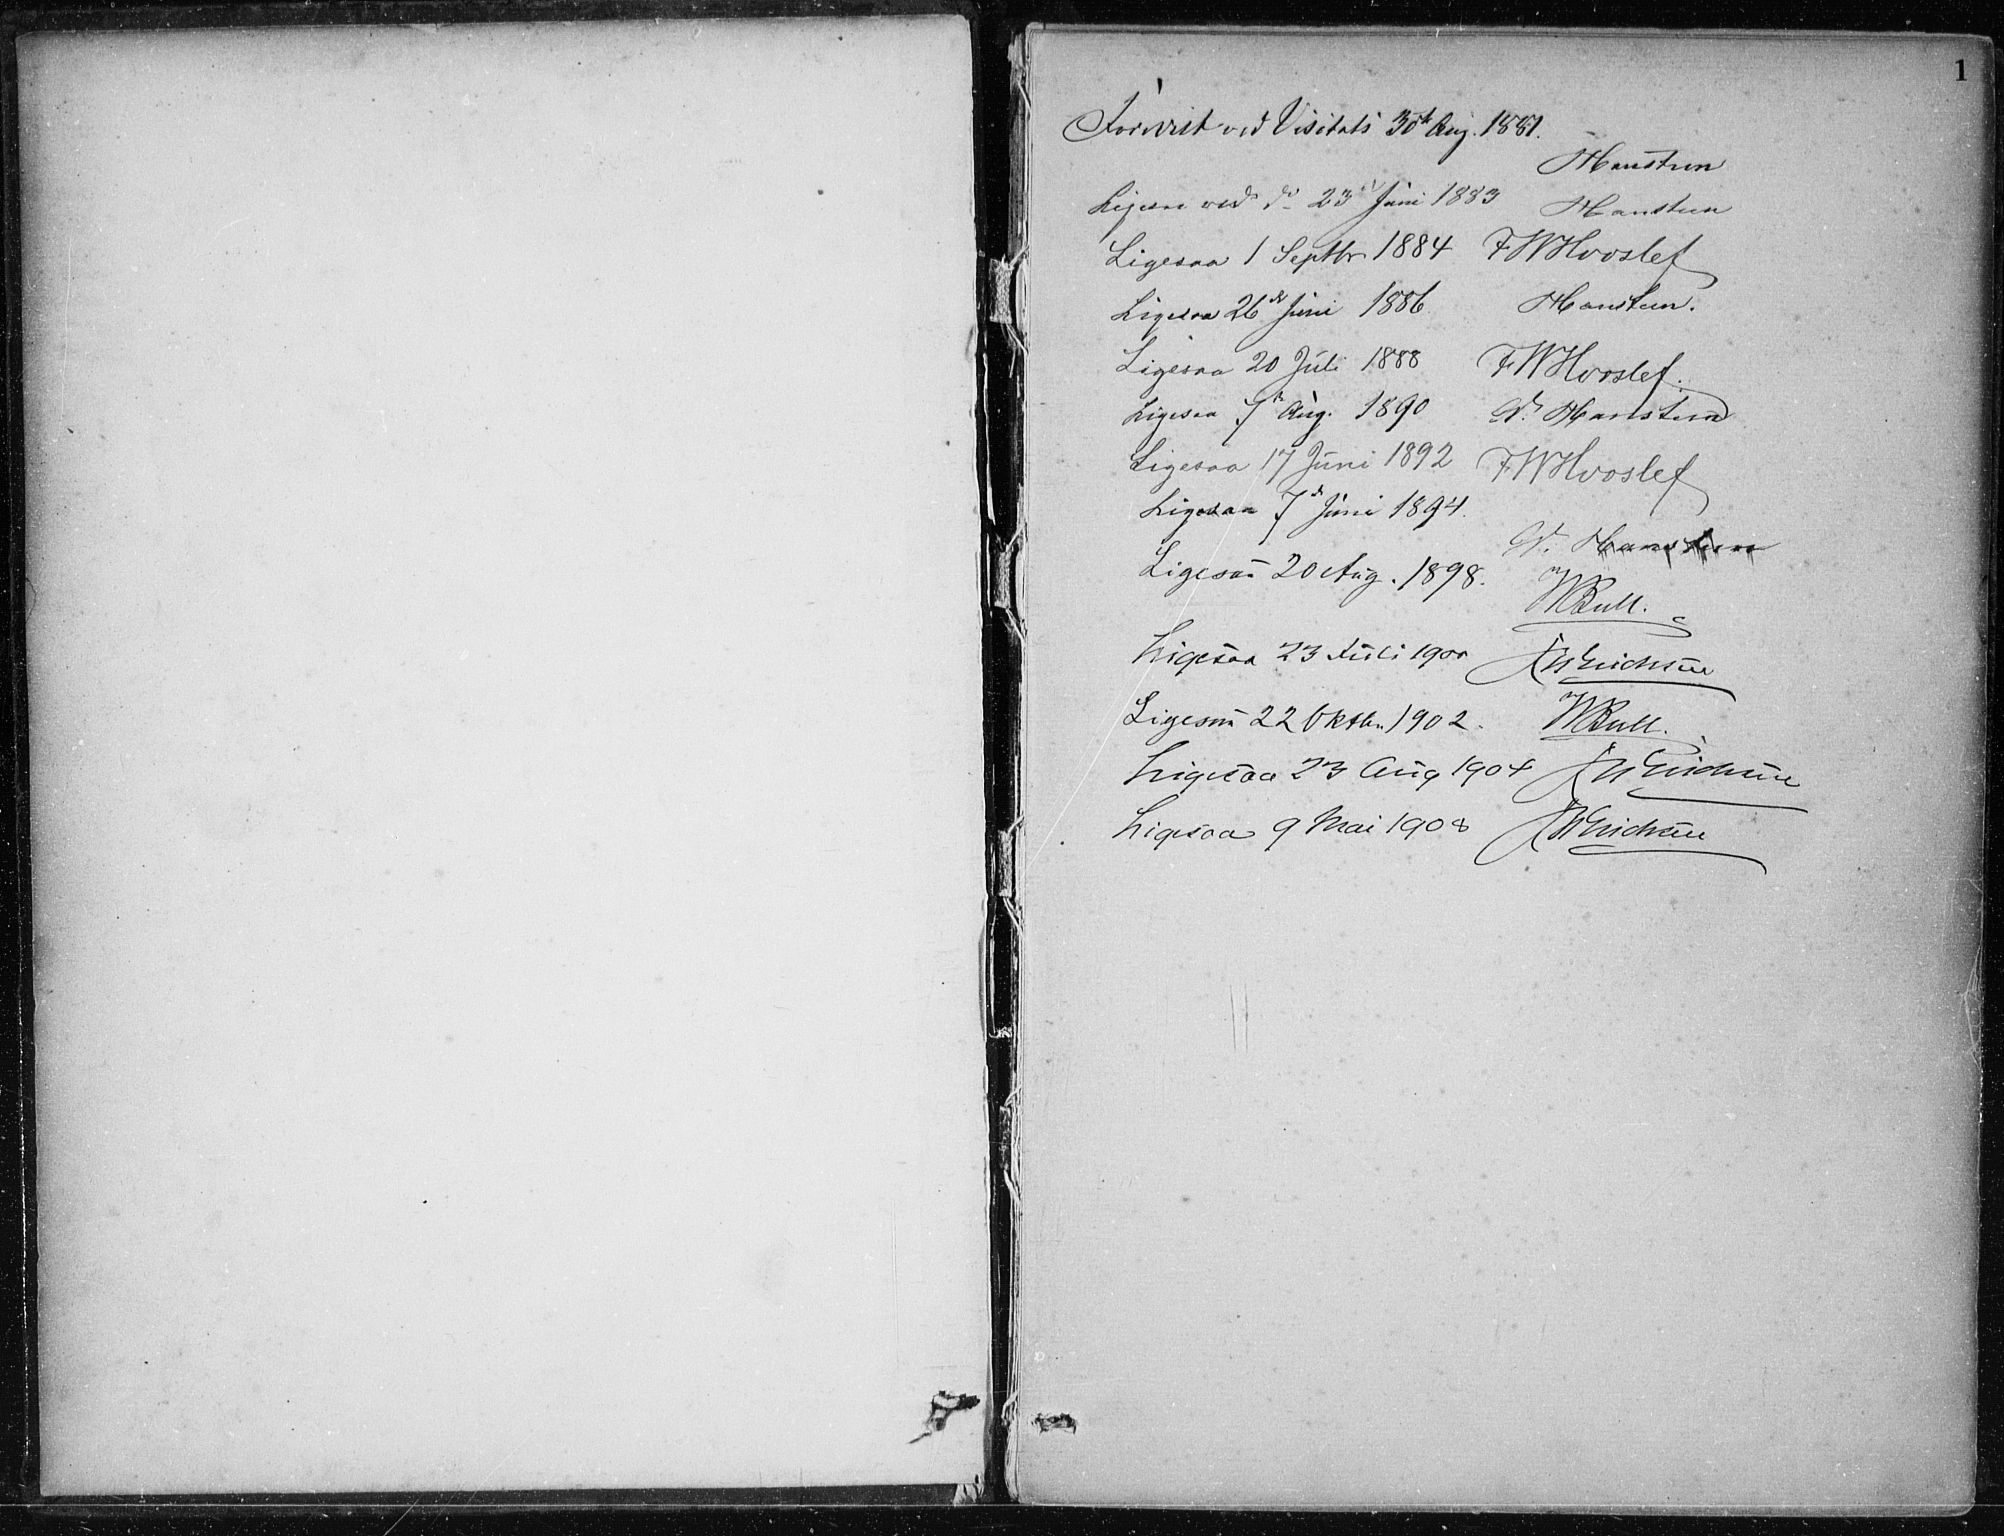 1
Forevist ved Visitats 30te Aug. 1881.
Hansteen
Ligesaa ved do 23de Juni 1883 Hansteen
Ligesaa 1 Septbr 1884 FWHvoslef
Ligesaa 26de Juni 1886. Hansteen.
Ligesaa 20 Juli 1888 FWHvoslef.
Ligesaa 7de Aug. 1890 V. Hansteen
Ligesaa 17 Juni 1892 FWHvoslef
Ligesaa 7de Juni 1894.
V. Hansteen
Ligesaa 20 Aug. 1898.
WBull.
Ligesaa 23 Juli 1900
Ligesaa 22 Oktbr. 1902. WBull.
Ligesaa 23 Aug 1904
Ligesaa 9 Mai 1908